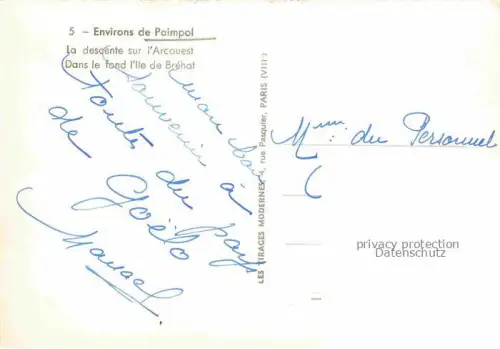 5 — Environs de Paimpol
La descente sur l'Arcouest
Dans le fond l'Ile de Bréhat
mon bon
souvenir à
toutes du pays
de Goëlo
LES TIRAGES MODERNES, 4, rue Pasquier, PARIS (VIII)
du Personnel
privacy protection
Datenschutz